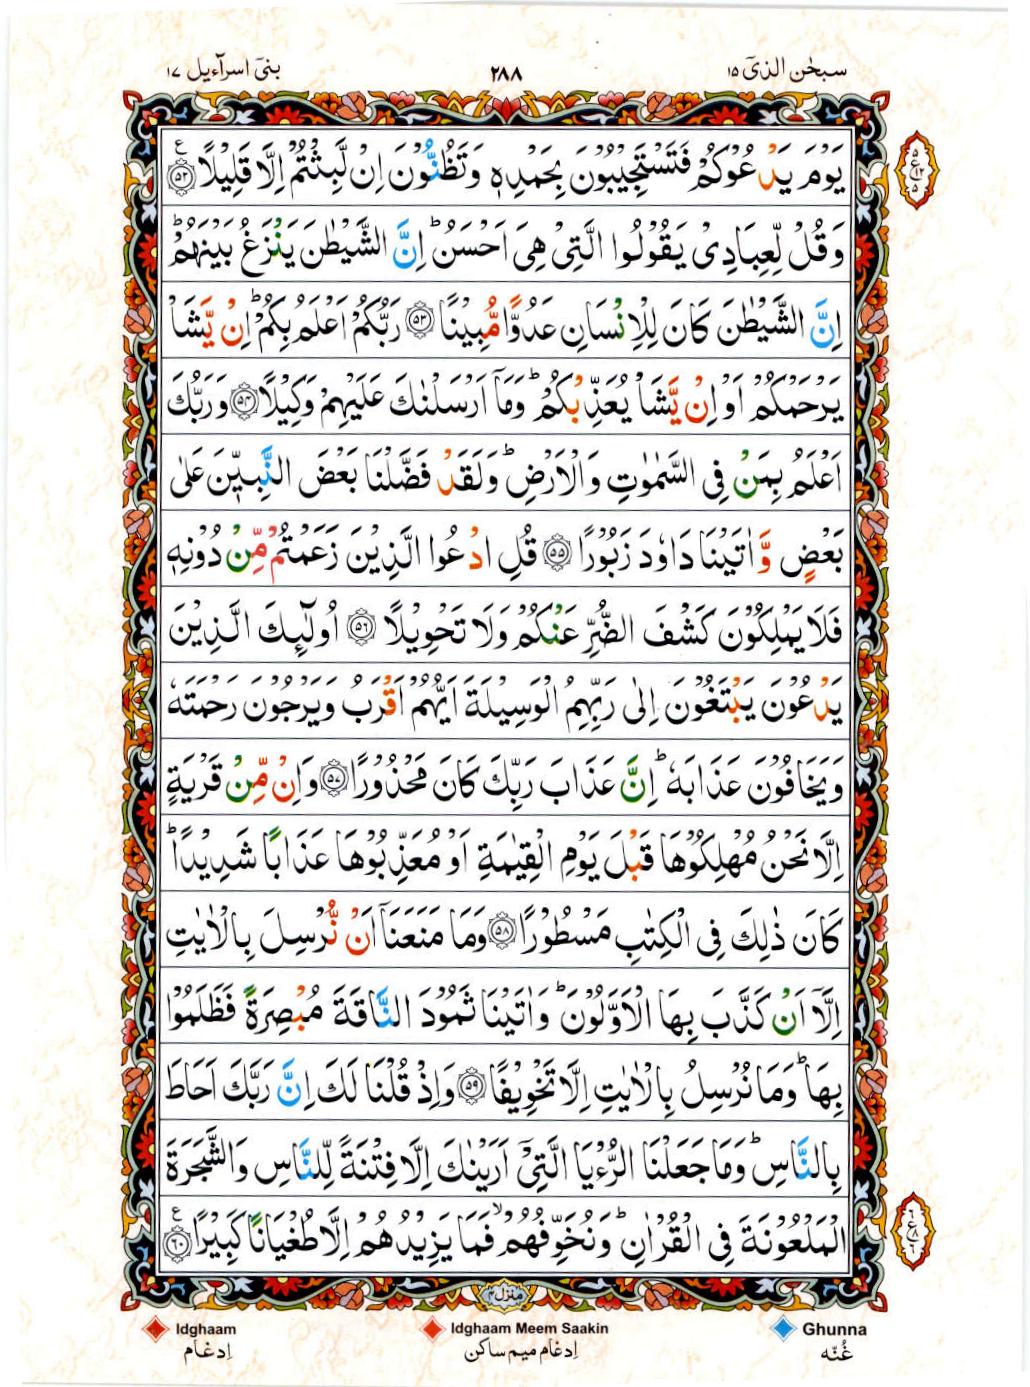 سبحٰن الذیٓ ۱۵
۲۸۸
بنیٓ اسرآءیل ۱۷
يَوْمَ يَدْعُوْكُمْ فَتَسْتَجِيْبُوْنَ بِحَمْدِهٖ وَتَظُنُّوْنَ اِنْ لَّبِثْتُمْ اِلَّا قَلِيْلًا ۵۲ ع
وَقُلْ لِّعِبَادِيْ يَقُوْلُوا الَّتِيْ هِيَ اَحْسَنُ ؕ اِنَّ الشَّيْطٰنَ يَنْزَغُ بَيْنَهُمْ ؕ
اِنَّ الشَّيْطٰنَ كَانَ لِلْاِنْسَانِ عَدُوًّا مُّبِيْنًا ۵۳ رَبُّكُمْ اَعْلَمُ بِكُمْ ؕ اِنْ يَّشَاْ
يَرْحَمْكُمْ اَوْ اِنْ يَّشَاْ يُعَذِّبْكُمْ ؕ وَمَاۤ اَرْسَلْنٰكَ عَلَيْهِمْ وَكِيْلًا ۵۴ وَرَبُّكَ
اَعْلَمُ بِمَنْ فِي السَّمٰوٰتِ وَالْاَرْضِ ؕ وَلَقَدْ فَضَّلْنَا بَعْضَ النَّبِيّٖنَ عَلٰى
بَعْضٍ وَّاٰتَيْنَا دَاوٗدَ زَبُوْرًا ۵۵ قُلِ ادْعُوا الَّذِيْنَ زَعَمْتُمْ مِّنْ دُوْنِهٖ
فَلَا يَمْلِكُوْنَ كَشْفَ الضُّرِّ عَنْكُمْ وَلَا تَحْوِيْلًا ۵۶ اُولٰٓئِكَ الَّذِيْنَ
يَدْعُوْنَ يَبْتَغُوْنَ اِلٰى رَبِّهِمُ الْوَسِيْلَةَ اَيُّهُمْ اَقْرَبُ وَيَرْجُوْنَ رَحْمَتَهٗ
وَيَخَافُوْنَ عَذَابَهٗ ؕ اِنَّ عَذَابَ رَبِّكَ كَانَ مَحْذُوْرًا ۵۷ وَاِنْ مِّنْ قَرْيَةٍ
اِلَّا نَحْنُ مُهْلِكُوْهَا قَبْلَ يَوْمِ الْقِيٰمَةِ اَوْ مُعَذِّبُوْهَا عَذَابًا شَدِيْدًا ؕ
كَانَ ذٰلِكَ فِي الْكِتٰبِ مَسْطُوْرًا ۵۸ وَمَا مَنَعَنَاۤ اَنْ نُّرْسِلَ بِالْاٰيٰتِ
اِلَّاۤ اَنْ كَذَّبَ بِهَا الْاَوَّلُوْنَ ؕ وَاٰتَيْنَا ثَمُوْدَ النَّاقَةَ مُبْصِرَةً فَظَلَمُوْا
بِهَا ؕ وَمَا نُرْسِلُ بِالْاٰيٰتِ اِلَّا تَخْوِيْفًا ۵۹ وَاِذْ قُلْنَا لَكَ اِنَّ رَبَّكَ اَحَاطَ
بِالنَّاسِ ؕ وَمَا جَعَلْنَا الرُّءْيَا الَّتِيْۤ اَرَيْنٰكَ اِلَّا فِتْنَةً لِّلنَّاسِ وَالشَّجَرَةَ
الْمَلْعُوْنَةَ فِي الْقُرْاٰنِ ؕ وَنُخَوِّفُهُمْ ۙ فَمَا يَزِيْدُهُمْ اِلَّا طُغْيَانًا كَبِيْرًا ۶۰ ع
منزل ۴
Idghaam
Idghaam Meem Saakin
Ghunna
اِدغام
اِدغام میم ساکن
غُنّه